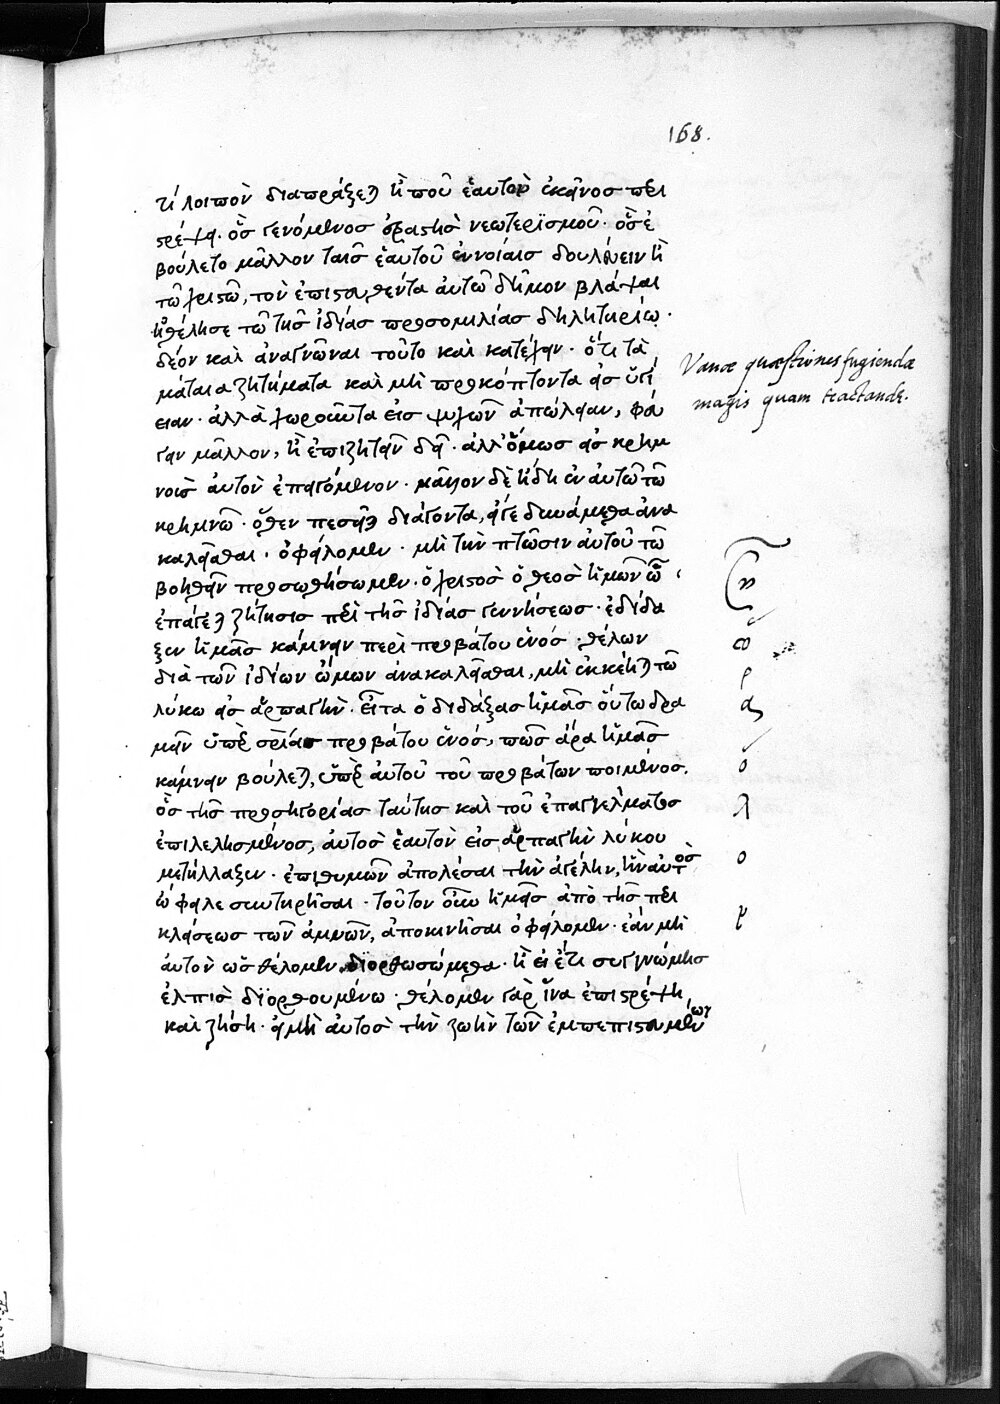 168.
τί λοιπὸν διαπράξεται ἢ ποῦ ἑαυτὸν ἐκεῖνος περι
στρέψει. ὃς γενόμενος ἐραστὴς νεωτερϊσμοῦ. ὃς ἐ
βούλετο μᾶλλον ταῖς ἑαυτοῦ ἐννοίαις δουλεύειν ἢ
τῶ χριστῶ, τὸν ἐπιστευθέντα αὐτῶ δῆμον βλάψαι
ἠθέλησε τῶ τῆς ἰδίας προσομιλίας δηλητηρίω.
δέον καὶ ἀναγνῶναι τοῦτο καὶ κατέχειν. ὅτι τὰ
μάταια ζητήματα καὶ μὴ προκόπτοντα εἰς ὑγί
ειαν. ἀλλὰ χωροῦντα εἰς ψυχῶν ἀπώλειαν, φεύ
γειν μᾶλλον, ἢ ἐπιζητεῖν δεῖ. ἀλλ' ὅμως εἰς κρημ
νοὺς αὐτὸν ἐπαγόμενον. μᾶλλον δὲ ἤδη ἐν αὐτῶ τῶ
κρημνῶ. ὅθεν πεσεῖται διάγοντα, εἴγε δυνάμεθα ἀνα
καλεῖσθαι. ὀφείλομεν. μὴ τὴν πτῶσιν αὐτοῦ τῶ
βοηθεῖν προσωθήσωμεν. ὁ χριστὸς ὁ θεὸς ἡμῶν ὧ
ἐπάγεται ζήτησις περὶ τῆς ἰδίας γεννήσεως. ἐδίδα
ξεν ἡμᾶς κάμνειν περὶ προβάτου ἑνός. θέλων
διὰ τῶν ἰδίων ὤμων ἀνακαλεῖσθαι, μὴ ἐκκέηται τῶ
λύκω εἰς ἁρπαγήν. εἶτα ὁ διδάξας ἡμᾶς οὕτω δρα
μεῖν ὑπὲρ σωτηρίας προβάτου ἑνός, πῶς ἄρα ἡμᾶς
κάμνειν βούλεται, ὑπὲρ αὐτοῦ τοῦ προβάτων ποιμένος.
ὃς τῆς προσηγορίας ταύτης καὶ τοῦ ἐπαγγέλματος
ἐπιλελησμένος, αὐτὸς ἑαυτὸν εἰς ἁρπαγὴν λύκου
μετήλλαξεν. ἐπιθυμῶν ἀπολέσαι τὴν ἀγέλην, ἣν αὐτὸς
ὤφειλε συντηρῆσαι. τοῦτον οὖν ἡμεῖς ἀπὸ τῆς περι
κλάσεως τῶν ἀμνῶν, ἀποκινῆσαι ὀφείλομεν. ἐὰν μὴ
αὐτὸν ὡς θέλομεν διορθωσώμεθα. ἢ εἰ ἔτι συγνώμης
ἐλπὶς διορθουμένω. θέλομεν γὰρ ἵνα ἐπιστρέψη
καὶ ζήση. εἰ μὴ αὐτὸς τὴν ζωὴν τῶν ἐμπεπιστευμένων
Vanæ quæstiones fugiendæ
magis quam tractandæ.